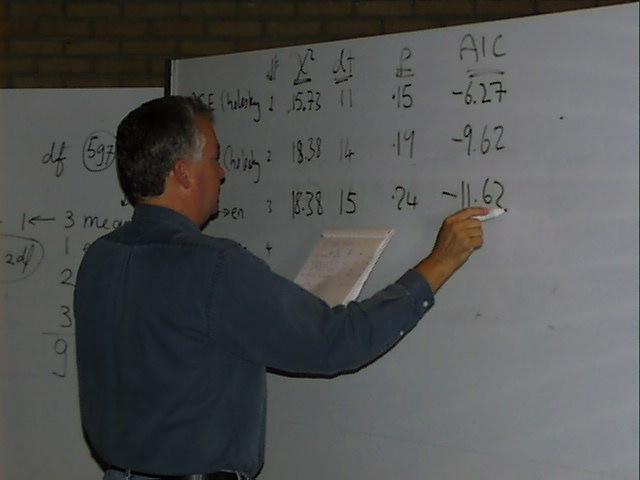 χ² df P AIC
SE Cholesky 1 15.73 11 .15 -6.27
Cholesky 2 18.38 14 .19 -9.62
→en 3 18.38 15 .24 -11.62
4
df 597
1 ← 3 mea
2df 1
2
3
9